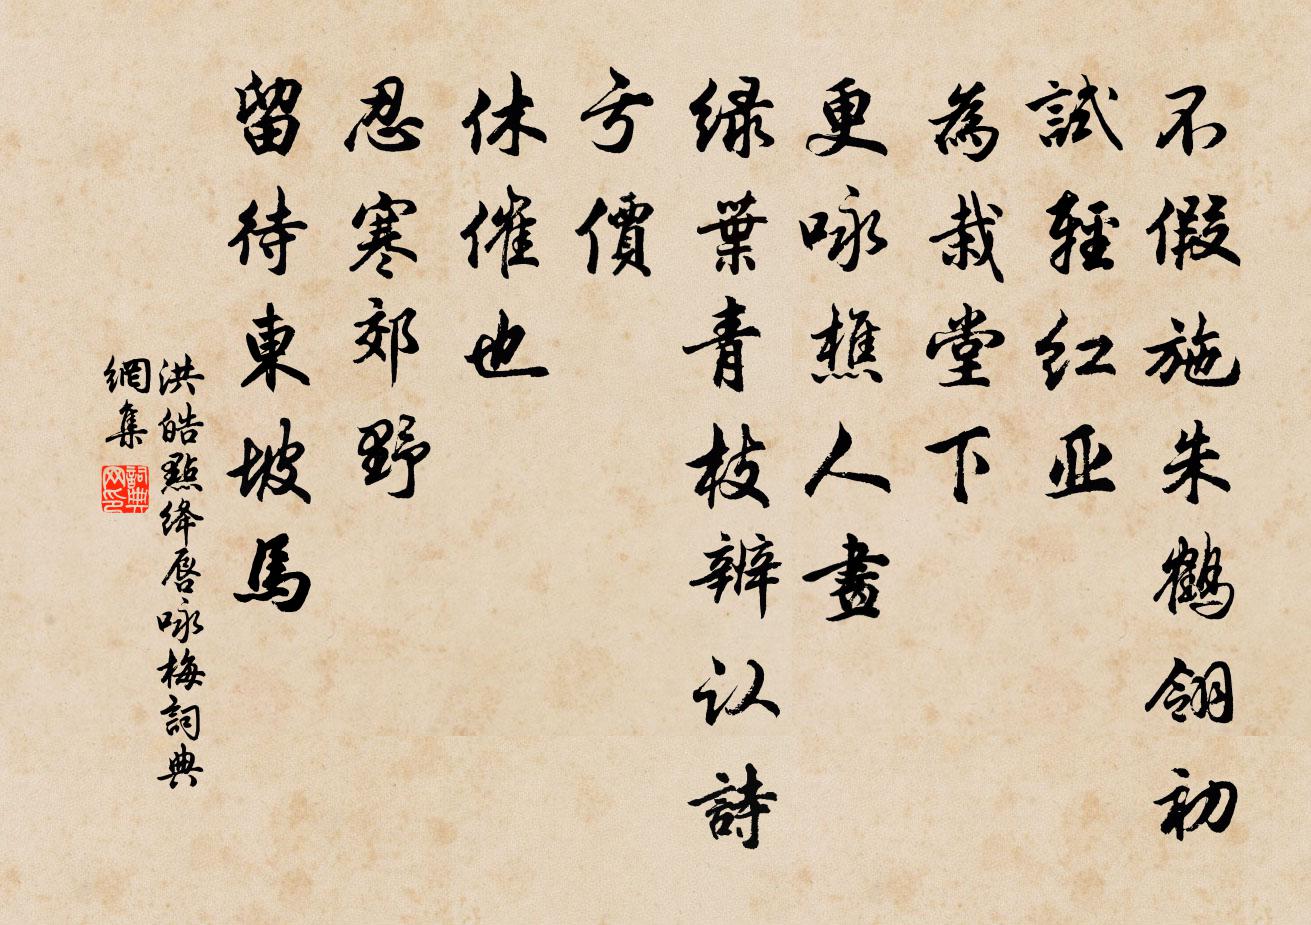 不假施朱鶴翎初
試輕红亚
為栽堂下
更咏樵人畫
緑葉青枝辨认詩
亏價
休催也
忍寒郊野
留待東坡馬
洪皓點绛唇咏梅詞典
網集
詞典
网